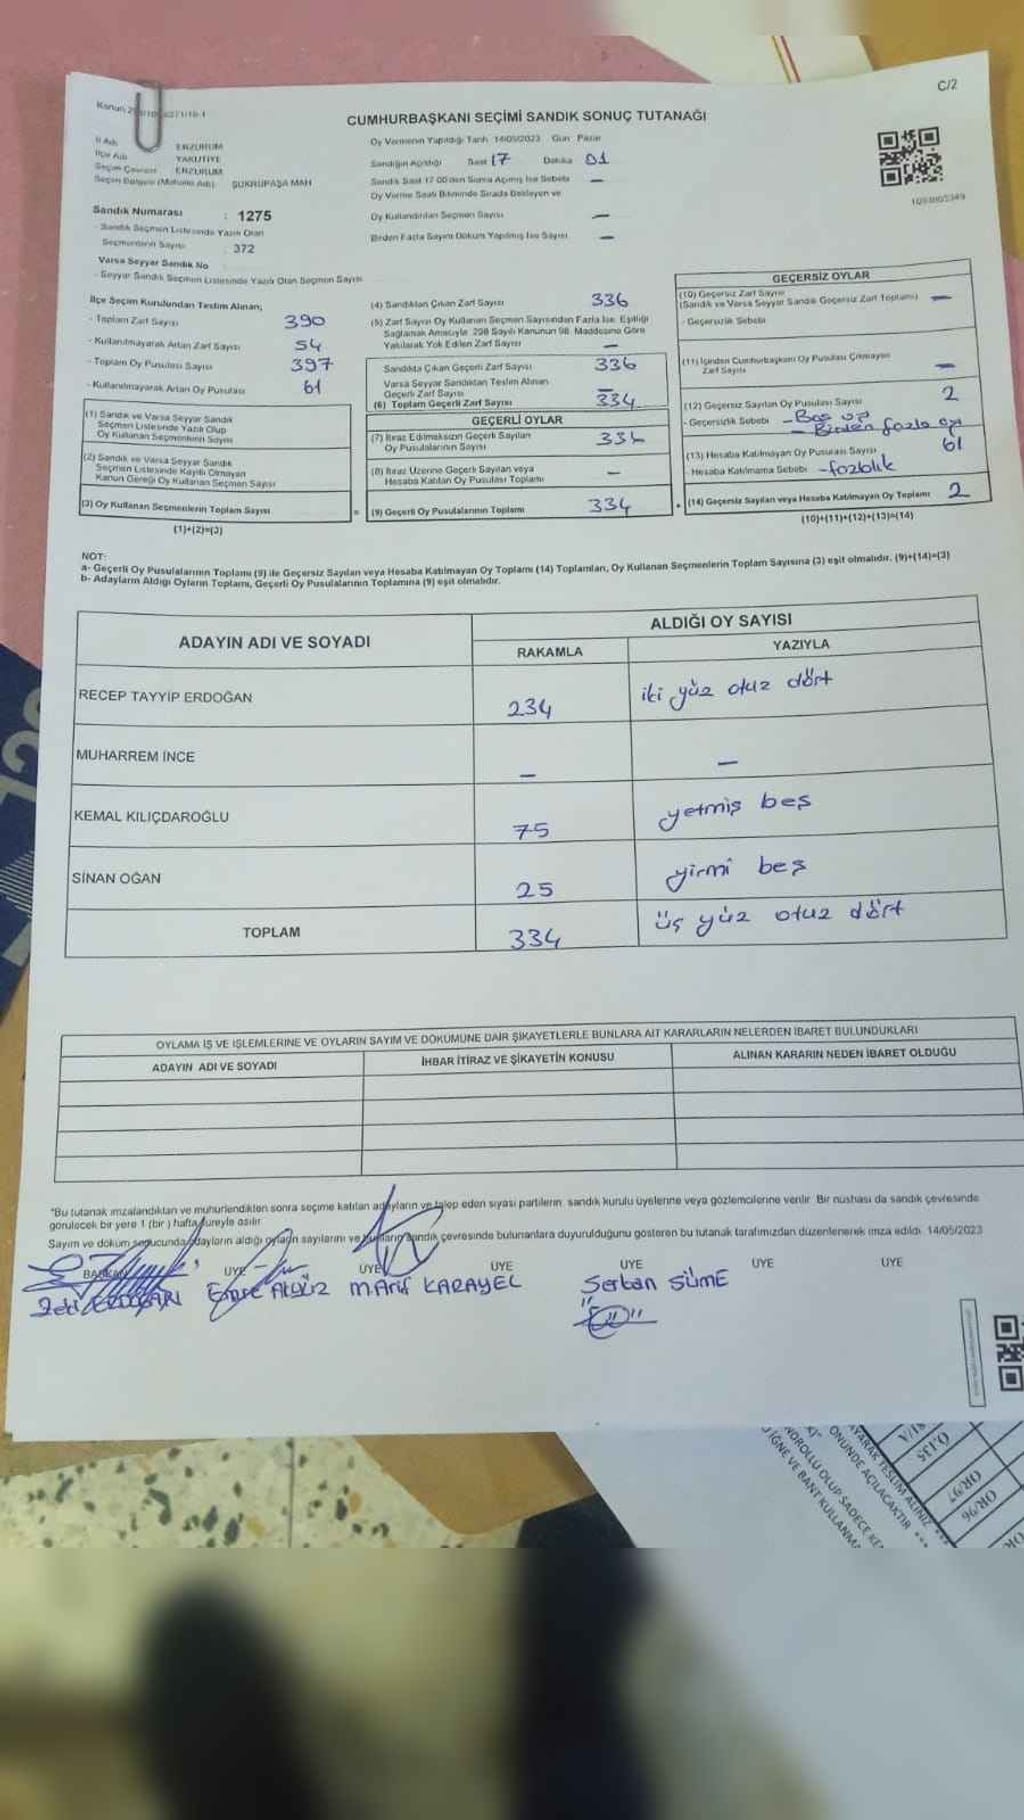 C/2
CUMHURBAŞKANI SEÇİMİ SANDIK SONUÇ TUTANAĞI
İl Adı ERZURUM
İlçe Adı YAKUTİYE
Seçim Çevresi ERZURUM
Seçim Bölgesi (Muhtarlık Adı) ŞÜKRÜPAŞA MAH
Oy Vermenin Yapıldığı Tarih 14/05/2023 Gün Pazar
Sandığın Açıldığı Saat 17 Dakika 01
Sandık Saat 17 00'den Sonra Açılmış İse Sebebi —
Oy Verme Saati Bitiminde Sırada Bekleyen ve
Oy Kullandırılan Seçmen Sayısı —
Birden Fazla Sayım Döküm Yapılmış İse Sayısı —
Sandık Numarası : 1275
- Sandık Seçmen Listesinde Yazılı Olan
Seçmenlerin Sayısı : 372
Varsa Seyyar Sandık No
- Seyyar Sandık Seçmen Listesinde Yazılı Olan Seçmen Sayısı
İlçe Seçim Kurulundan Teslim Alınan;
- Toplam Zarf Sayısı 390
- Kullanılmayarak Artan Zarf Sayısı 54
- Toplam Oy Pusulası Sayısı 397
- Kullanılmayarak Artan Oy Pusulası 61
(1) Sandık ve Varsa Seyyar Sandık
Seçmen Listesinde Yazılı Olup
Oy Kullanan Seçmenlerin Sayısı
(2) Sandık ve Varsa Seyyar Sandık
Seçmen Listesinde Kayıtlı Olmayan
Kanun Gereği Oy Kullanan Seçmen Sayısı
(3) Oy Kullanan Seçmenlerin Toplam Sayısı
(1)+(2)=(3)
(4) Sandıktan Çıkan Zarf Sayısı 336
(5) Zarf Sayısı Oy Kullanan Seçmen Sayısından Fazla İse, Eşitliği
Sağlamak Amacıyla, 298 Sayılı Kanunun 98. Maddesine Göre
Yakılarak Yok Edilen Zarf Sayısı —
Sandıkta Çıkan Geçerli Zarf Sayısı 336
Varsa Seyyar Sandıktan Teslim Alınan
Geçerli Zarf Sayısı —
(6) Toplam Geçerli Zarf Sayısı 334
GEÇERLİ OYLAR
(7) İtiraz Edilmeksizin Geçerli Sayılan
Oy Pusulalarının Sayısı 334
(8) İtiraz Üzerine Geçerli Sayılan veya
Hesaba Katılan Oy Pusulası Toplamı —
= (9) Geçerli Oy Pusulalarının Toplamı 334
GEÇERSİZ OYLAR
(10) Geçersiz Zarf Sayısı
(Sandık ve Varsa Seyyar Sandık Geçersiz Zarf Toplamı) —
- Geçersizlik Sebebi
(11) İçinden Cumhurbaşkanı Oy Pusulası Çıkmayan
Zarf Sayısı —
(12) Geçersiz Sayılan Oy Pusulası Sayısı 2
- Geçersizlik Sebebi - Boş oy
- Birden fazla oy
(13) Hesaba Katılmayan Oy Pusulası Sayısı 61
- Hesaba Katılmama Sebebi - fazlalık
+ (14) Geçersiz Sayılan veya Hesaba Katılmayan Oy Toplamı 2
(10)+(11)+(12)+(13)=(14)
NOT:
a- Geçerli Oy Pusulalarının Toplamı (9) ile Geçersiz Sayılan veya Hesaba Katılmayan Oy Toplamı (14) Toplamları, Oy Kullanan Seçmenlerin Toplam Sayısına (3) eşit olmalıdır. (9)+(14)=(3)
b- Adayların Aldığı Oyların Toplamı, Geçerli Oy Pusulalarının Toplamına (9) eşit olmalıdır.
ADAYIN ADI VE SOYADI
ALDIĞI OY SAYISI
RAKAMLA YAZIYLA
RECEP TAYYİP ERDOĞAN 234 iki yüz otuz dört
MUHARREM İNCE — —
KEMAL KILIÇDAROĞLU 75 yetmiş beş
SİNAN OĞAN 25 yirmi beş
TOPLAM 334 üç yüz otuz dört
OYLAMA İŞ VE İŞLEMLERİNE VE OYLARIN SAYIM VE DÖKÜMÜNE DAİR ŞİKAYETLERLE BUNLARA AİT KARARLARIN NELERDEN İBARET BULUNDUKLARI
ADAYIN ADI VE SOYADI İHBAR İTİRAZ VE ŞİKAYETİN KONUSU ALINAN KARARIN NEDEN İBARET OLDUĞU
"Bu tutanak imzalandıktan ve mühürlendikten sonra seçime katılan adayların ve talep eden siyasi partilerin sandık kurulu üyelerine veya gözlemcilerine verilir. Bir nüshası da sandık çevresinde
görülecek bir yere 1 (bir) hafta süreyle asılır.
Sayım ve döküm sonucunda adayların aldığı oyların sayılarını ve bunların sandık çevresinde bulunanlara duyurulduğunu gösteren bu tutanak tarafımızdan düzenlenerek imza edildi. 14/05/2023
BAŞKAN ÜYE ÜYE ÜYE ÜYE ÜYE ÜYE
Zeki ERDOĞAN Emre M.Arif KARAYEL Serban SÜME
AYARAK TESLİM ALINIZ ***
ÖNÜNDE AÇILACAKTIR ***
NDROLLU OLUP SADECE
İĞNE VE BANT
0.135
OR/97
OR/96